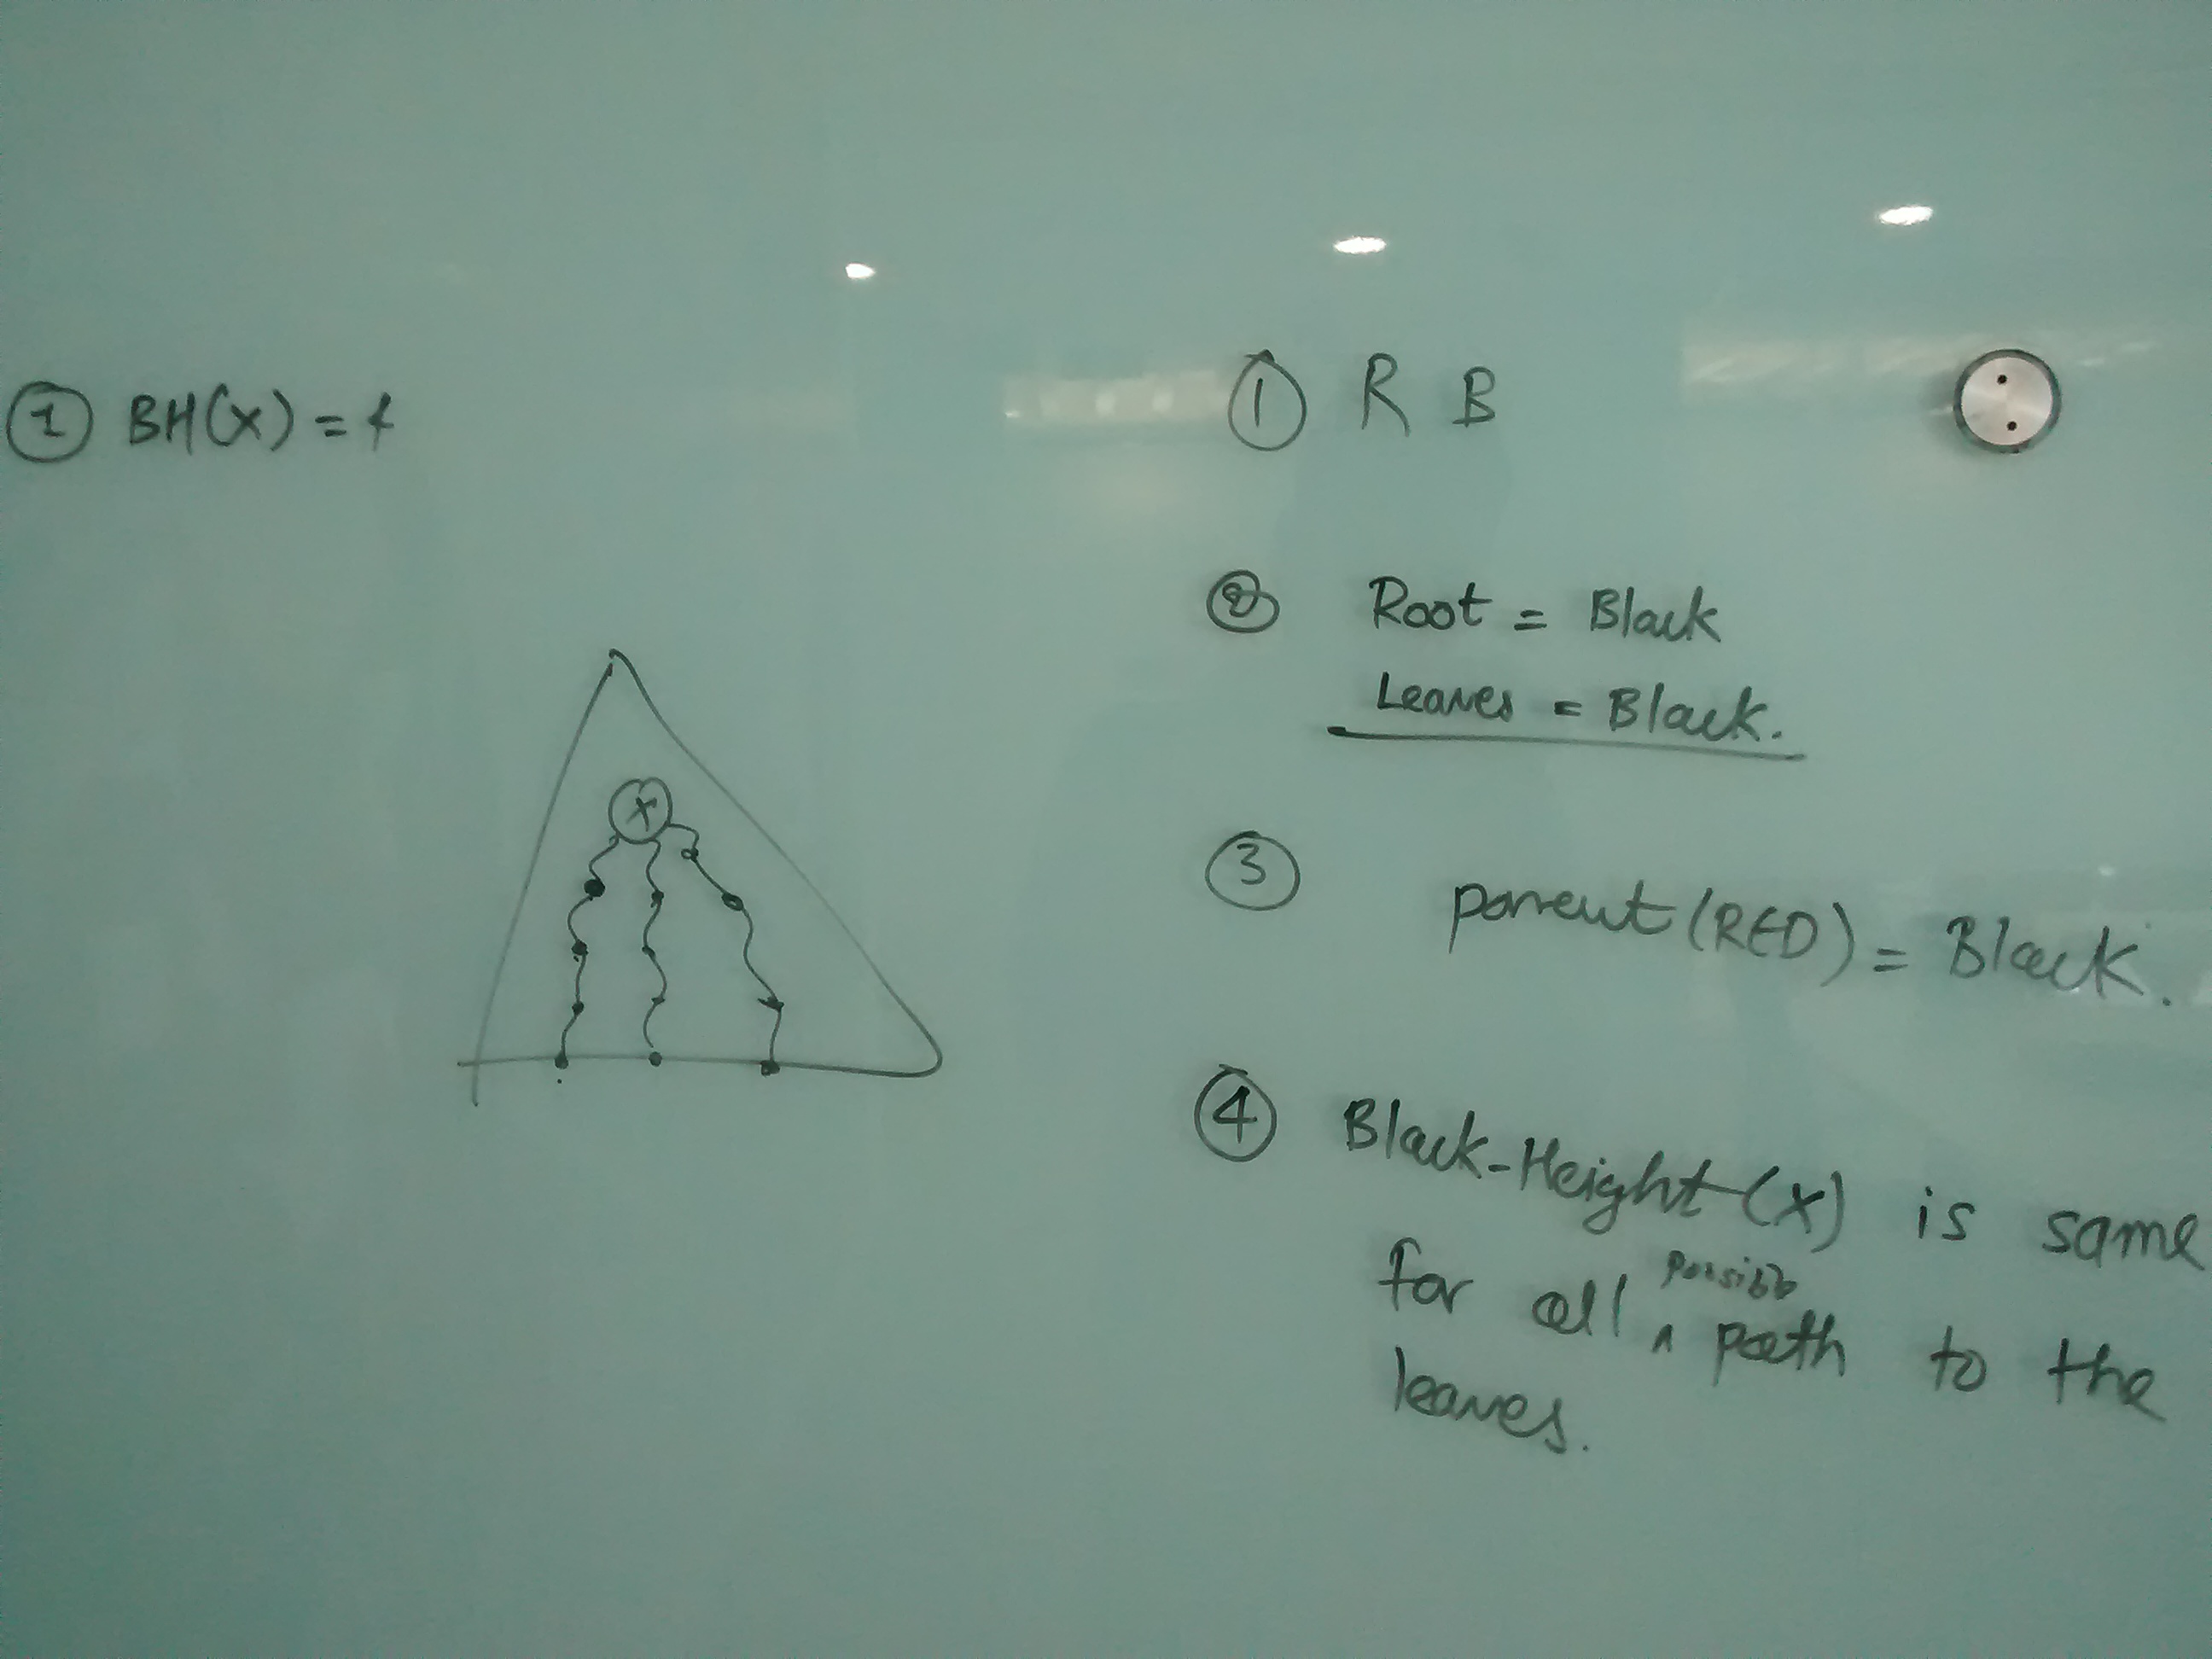 ① BH(X) = f
X
① R B
② Root = Black
Leaves = Black.
③ parent (RED) = Black.
④ Black-Height (X) is same
for all possible path to the
leaves.